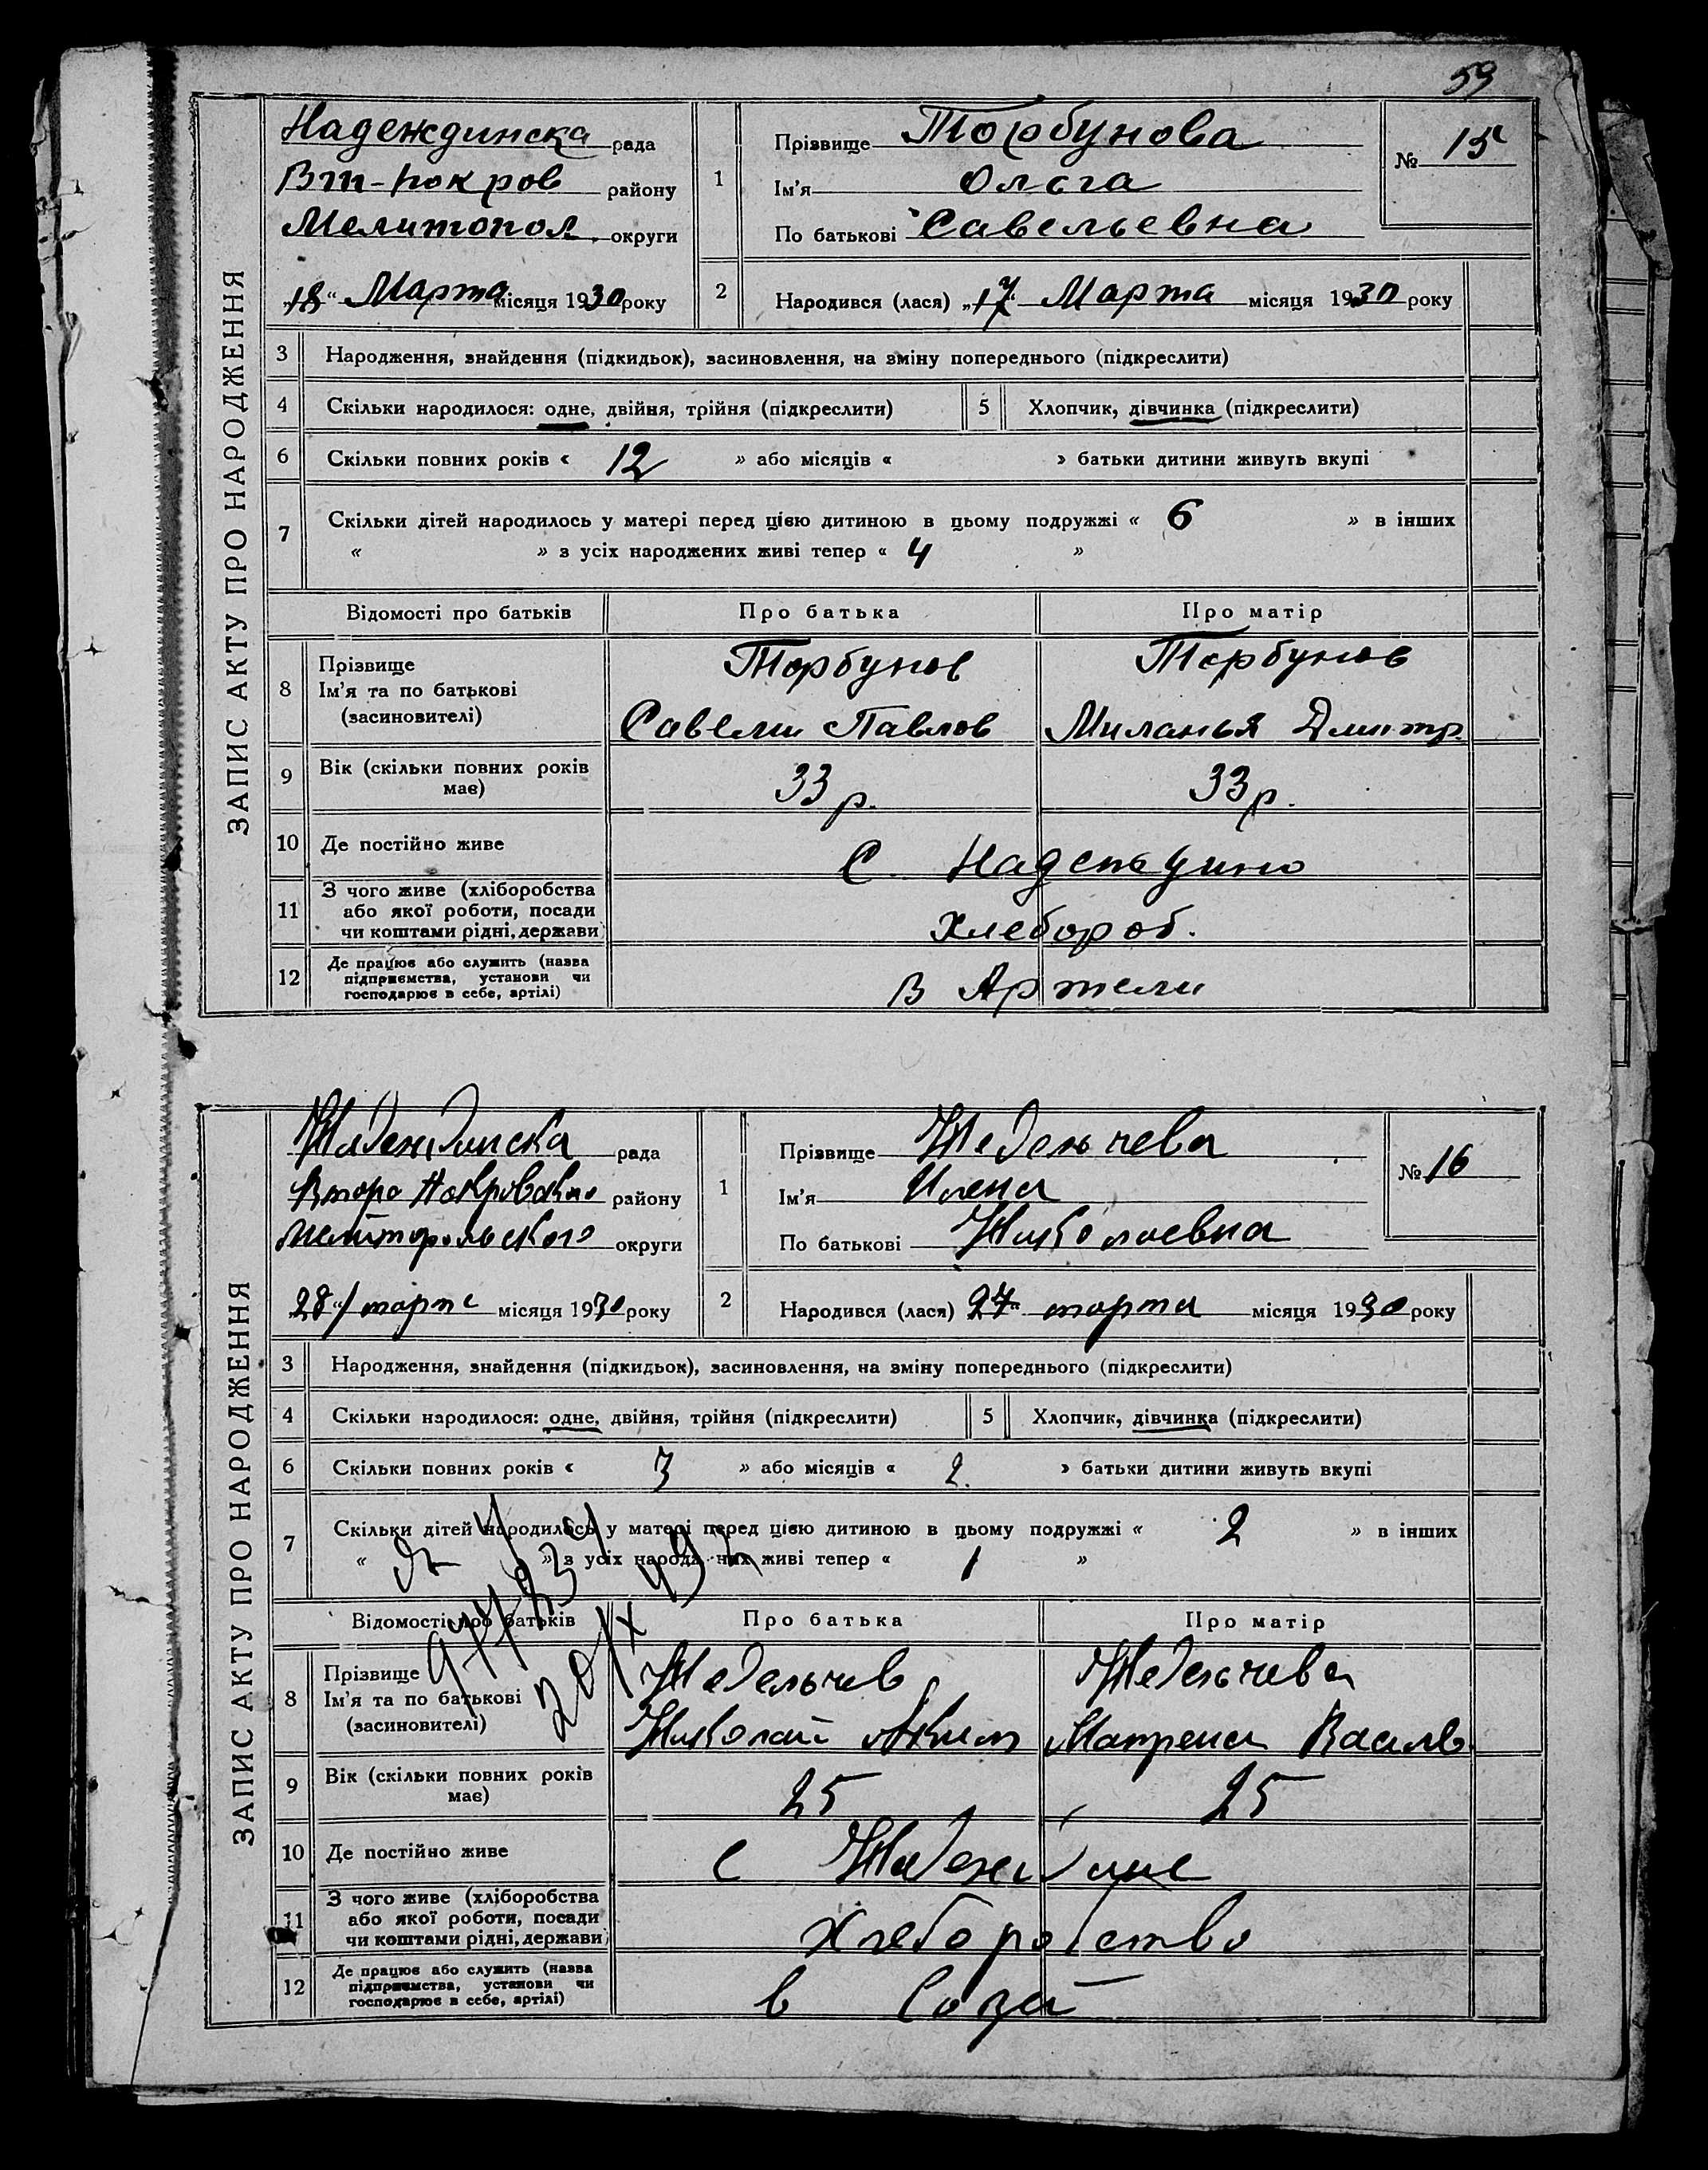 59
ЗАПИС АКТУ ПРО НАРОДЖЕННЯ
Надеждинска рада
Вт-Покров району
Мелитопол. округи
„18“ Марта місяця 1930 року
1 Прізвище Торбунова
Ім'я Ольга
По батькові Савельевна
№ 15
2 Народився (лася) „17“ Марта місяця 1930 року
3 Народження, знайдення (підкидьок), засиновлення, на зміну попереднього (підкреслити)
4 Скільки народилося: одне, двійня, трійня (підкреслити) 5 Хлопчик, дівчинка (підкреслити)
6 Скільки повних років « 12 » або місяців « » батьки дитини живуть вкупі
7 Скільки дітей народилось у матері перед цією дитиною в цьому подружжі « 6 » в інших
« » з усіх народжених живі тепер « 4 »
Відомості про батьків Про батька Про матір
8 Прізвище Ім'я та по батькові (засновителі)
Торбунов Торбунов
Савели Павлов Миланья Дмитр.
9 Вік (скільки повних років має) 33 р. 33 р.
10 Де постійно живе С. Надеждино
11 З чого живе (хліборобства або якої роботи, посади чи коштами рідні, держави) Хлебороб.
12 Де працює або служить (назва підприємства, установи чи господарює в себе, артілі) В Артели
ЗАПИС АКТУ ПРО НАРОДЖЕННЯ
Надеждинска рада
Второ Покровского району
Мелитопольского округи
28 марта місяця 1930 року
1 Прізвище Недельчева
Ім'я
По батькові Николаевна
№ 16
2 Народився (лася) 27 марта місяця 1930 року
3 Народження, знайдення (підкидьок), засиновлення, на зміну попереднього (підкреслити)
4 Скільки народилося: одне, двійня, трійня (підкреслити) 5 Хлопчик, дівчинка (підкреслити)
6 Скільки повних років « 3 » або місяців « 2. » батьки дитини живуть вкупі
7 Скільки дітей народилось у матері перед цією дитиною в цьому подружжі « 2 » в інших
« » з усіх народжених живі тепер « 1 »
Відомості про батьків Про батька Про матір
8 Прізвище Ім'я та по батькові (засиновителі)
Недельчев Недельчева
Николай Аким Матрена Василь
9 Вік (скільки повних років має) 25 25
10 Де постійно живе с Надеждине
11 З чого живе (хліборобства або якої роботи, посади чи коштами рідні, держави) Хлеборобство
12 Де працює або служить (назва підприємства, установи чи господарює в себе, артілі) в Созе